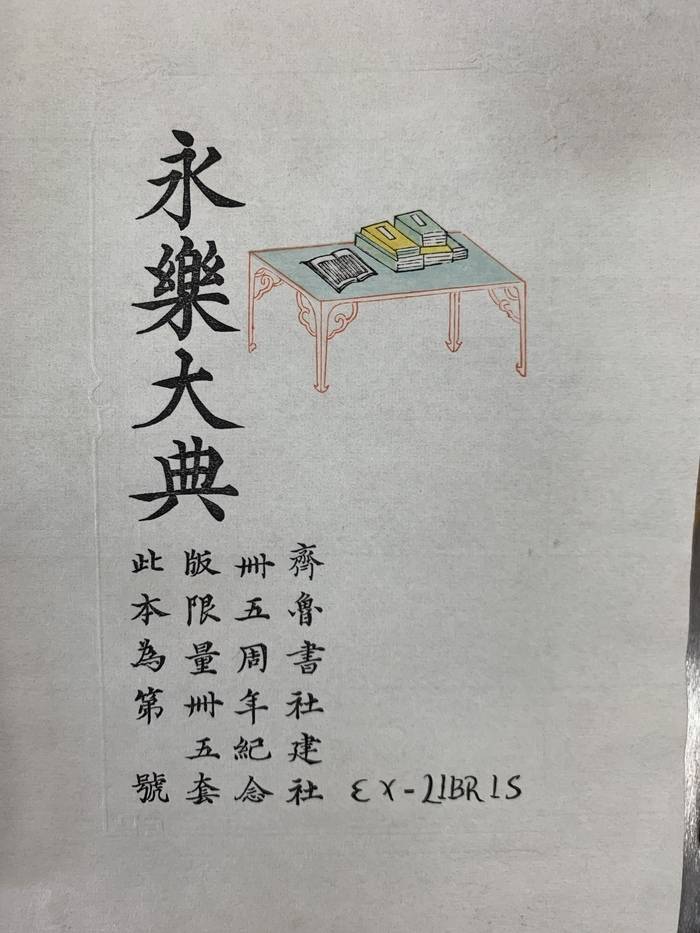 永樂大典
齊魯書社建社
卌五周年紀念
版限量卌五套
此本為第 號
EX-LIBRIS